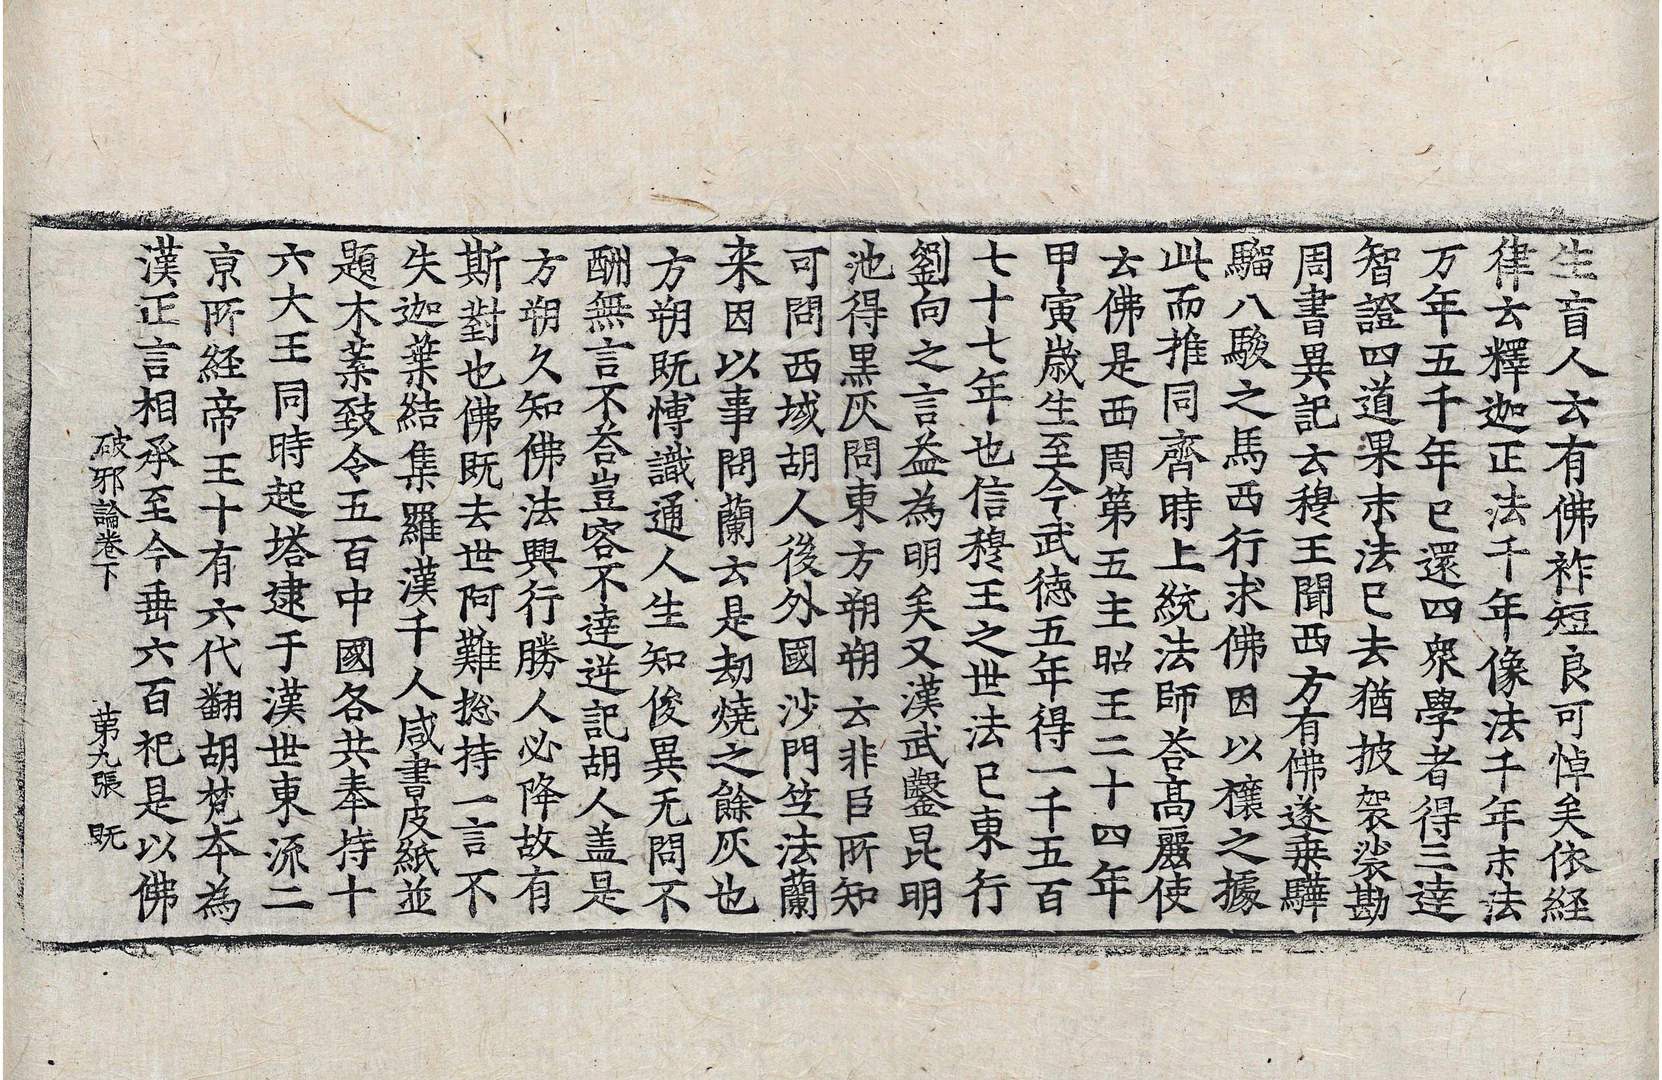 生盲人云有佛祚短良可悼矣依經
律云釋迦正法千年像法千年末法
万年五千年已還四衆學者得三達
智證四道果末法已去猶披袈裟勘
周書異記云穆王聞西方有佛遂乗驊
騮八駿之馬西行求佛因以穰之據
此而推同齊時上統法師荅髙麗使
云佛是西周第五主昭王二十四年
甲寅歳生至今武德五年得一千五百
七十七年也信穆王之世法已東行
劉向之言益為明矣又漢武鑿昆明
池得黒灰問東方朔朔云非臣所知
可問西域胡人後外國沙門竺法蘭
来因以事問蘭云是劫燒之餘灰也
方朔既愽識通人生知俊異无問不
酬無言不荅豈容不逹逆記胡人盖是
方朔久知佛法興行勝人必降故有
斯對也佛既去世阿難揔持一言不
失迦葉結集羅漢千人咸書皮紙並
題木葉致令五百中國各共奉持十
六大王同時起塔逮于漢世東流二
京所経帝王十有六代翻胡梵本為
漢正言相承至今垂六百祀是以佛
破邪論卷下 第九張 既